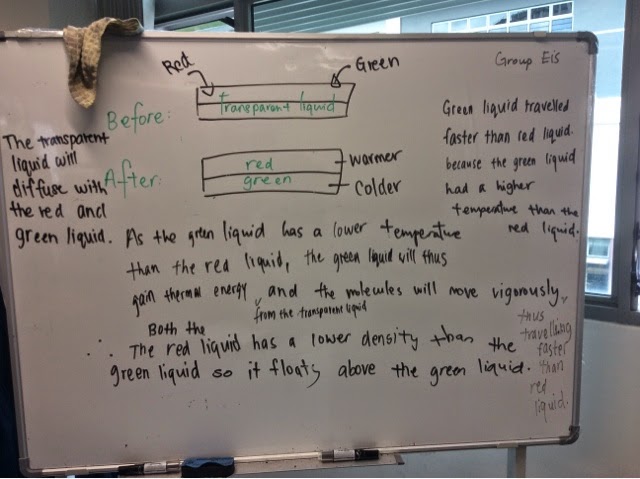 Group Eis
Red
Green
Before:
Transparent liquid
After:
red
green
warmer
colder
The transparent
liquid will
diffuse with
the red and
green liquid.
Green liquid travelled
faster than red liquid.
because the green liquid
had a higher
temperature than the
red liquid.
As the green liquid has a lower temperature
than the red liquid, the green liquid will thus
gain thermal energy from the transparent liquid and the molecules will move vigorously,
thus
travelling
faster
than
red
liquid.
Both the
∴ The red liquid has a lower density than the
green liquid so it floats above the green liquid.